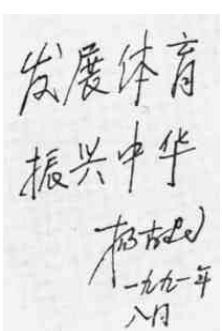 发展体育
振兴中华
一九九一年
八月